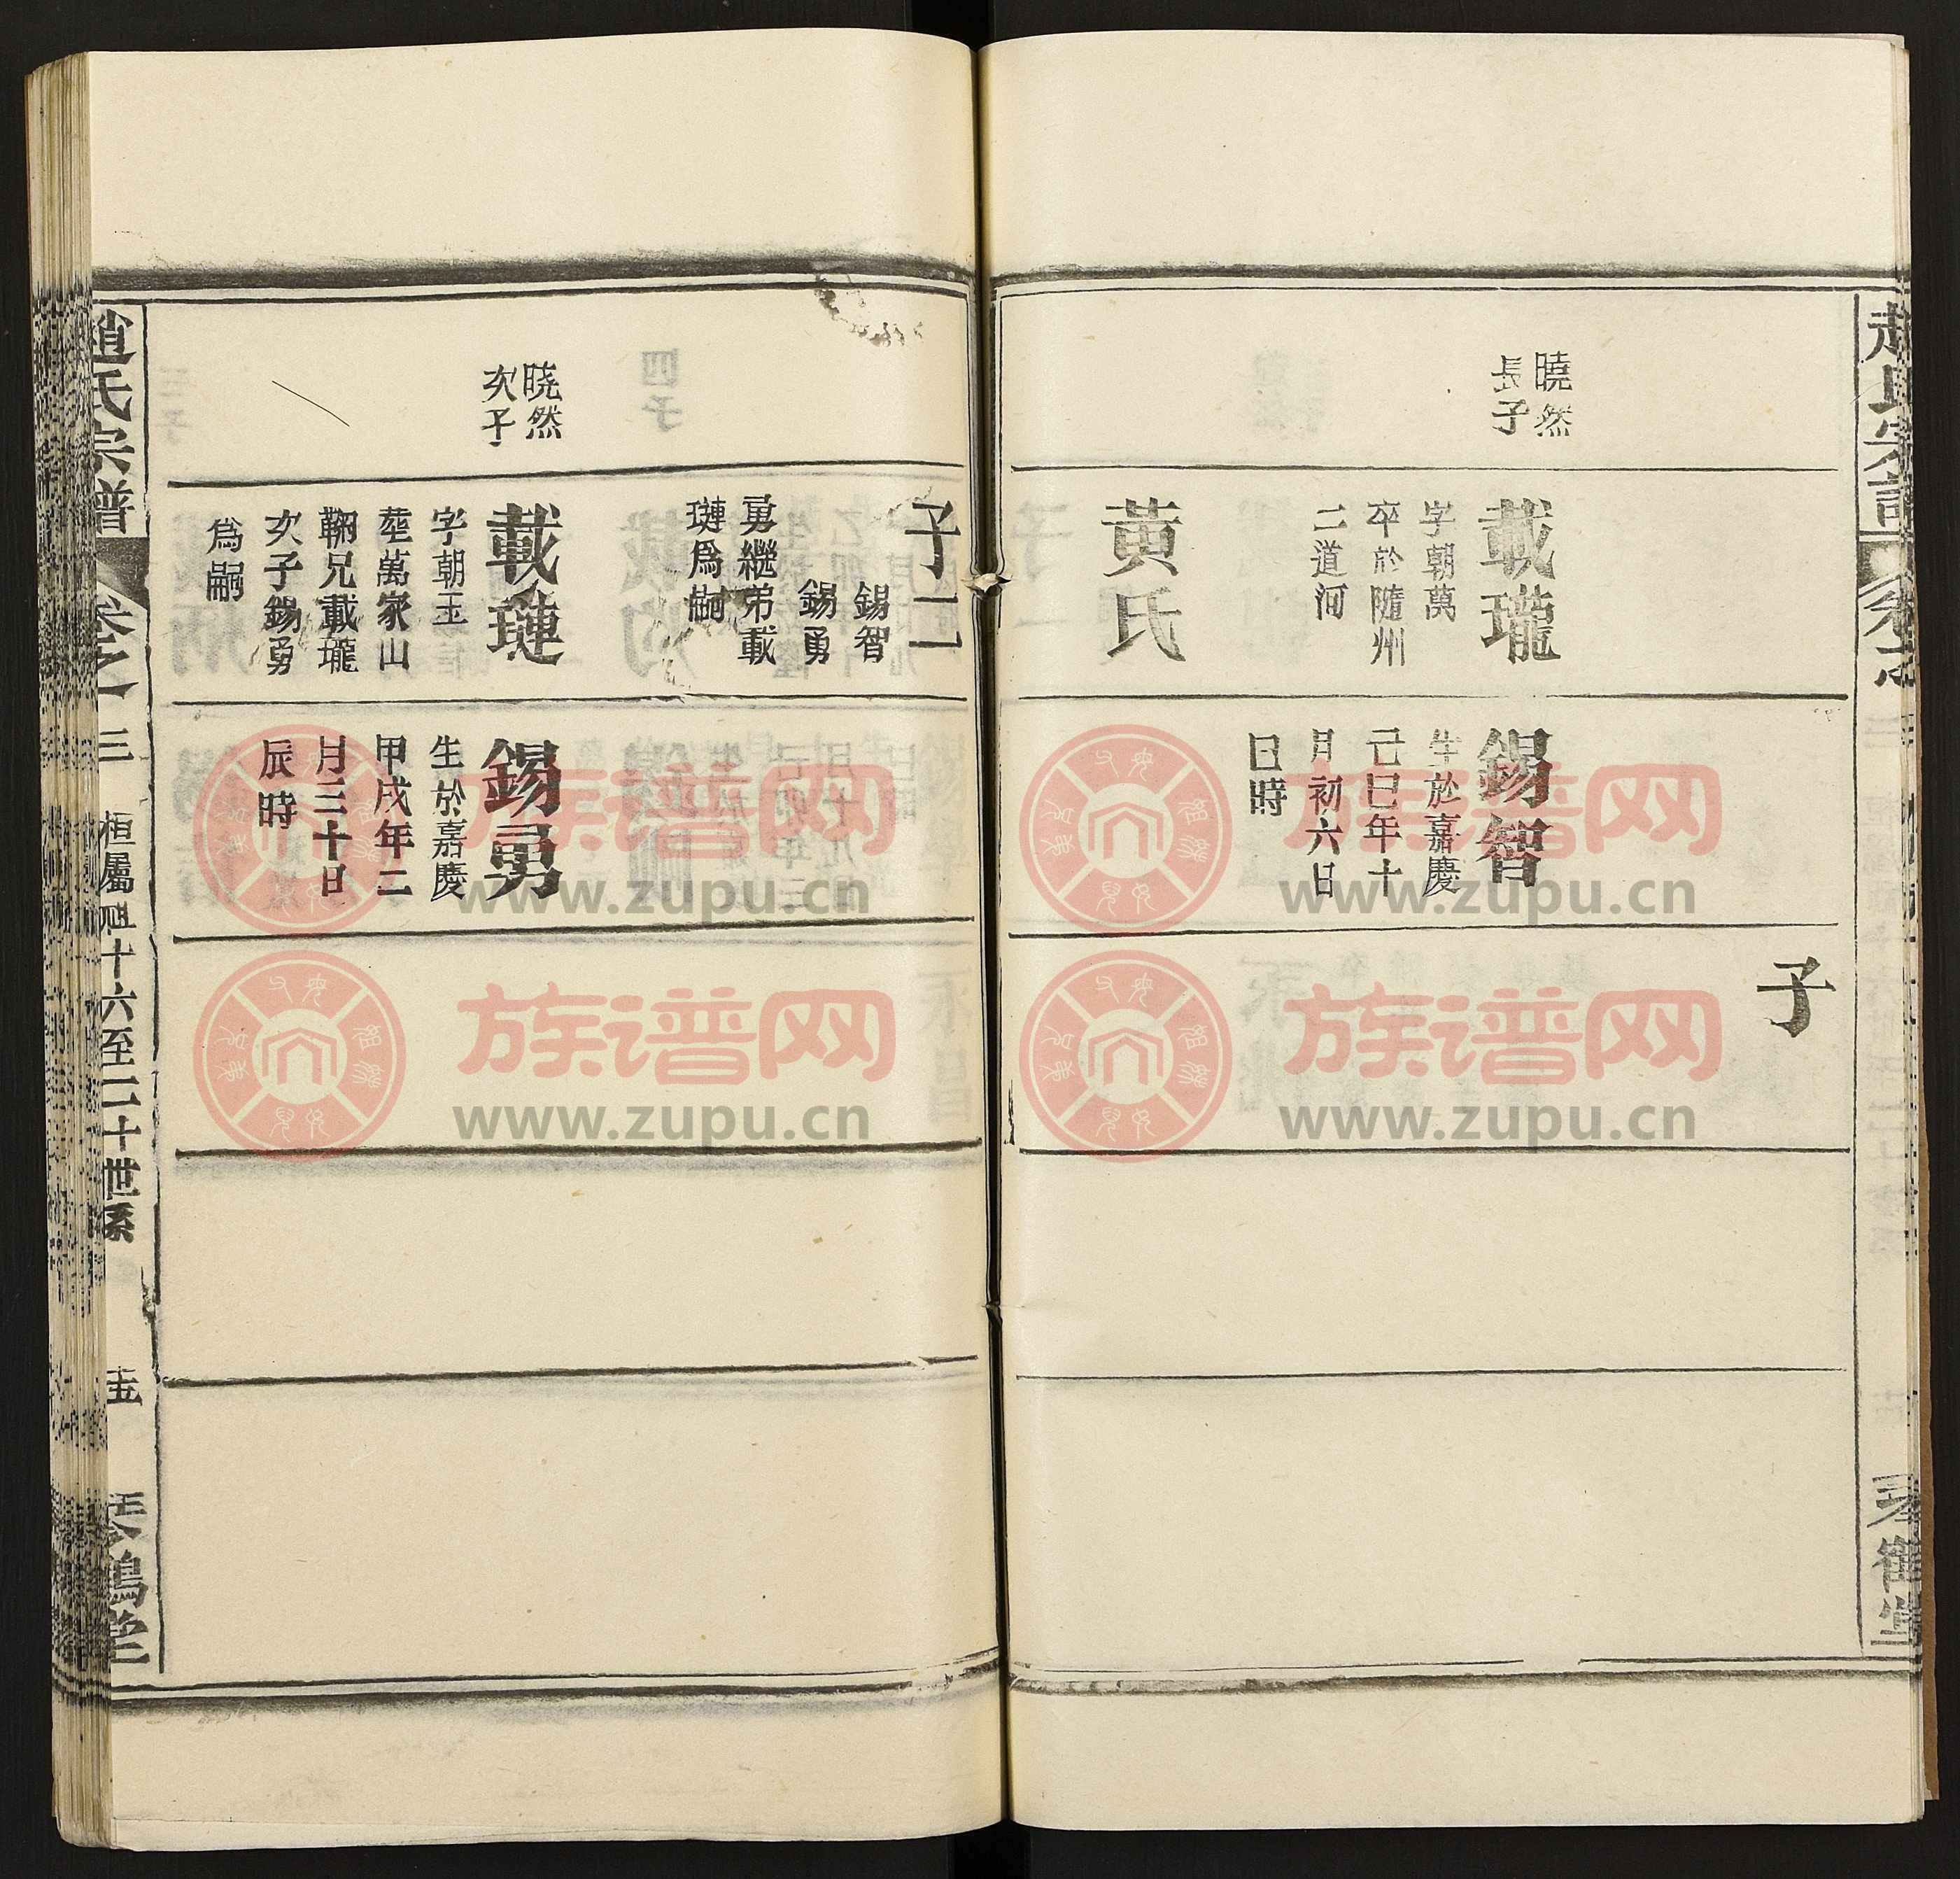 曉然
長子
載瓏
字朝萬
卒於隨州
二道河
黄氏
錫智
生於嘉慶
己巳年十
月初六日
巳時
子
琴鶴堂
子二
錫智
錫勇
勇繼弟載
璉爲嗣
曉然
次子
載璉
字朝玉
塟萬家山
鞠兄載瓏
次子錫勇
爲嗣
錫勇
生於嘉慶
甲戌年二
月三十日
辰時
趙氏宗譜
卷之一
三
桓屬魁十六至二十世系
琴鶴堂
族谱网
www.zupu.cn
族谱网
www.zupu.cn
族谱网
www.zupu.cn
族谱网
www.zupu.cn